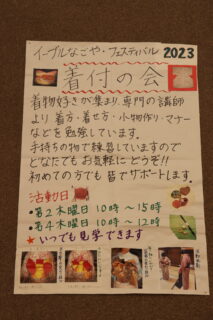 イーブルなごや・フェスティバル 2023
着付の会
着物好きが集まり、専門の講師
より 着方・着せ方・小物作り・マナー
などを勉強しています。
手持ちの物で練習していますので
どなたでもお気軽にどうぞ!!
初めての方でも皆でサポートします。
活動日
・第2木曜日 10時～15時
・第4木曜日 10時～12時
★いつでも見学できます